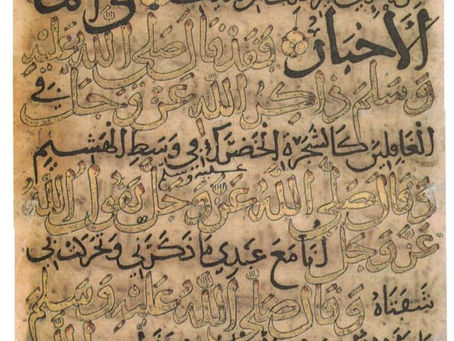 الأخبار فقد قال صلى الله عليه
وسلم ذاكر الله عز وجل في
الغافلين كالشجرة الخضراء في وسط الهشيم
وقال صلى الله عليه وسلم عز وجل يقول الله
عز وجل أنا مع عبدي ما ذكرني وتحركت بي
شفتاه وقال صلى الله عليه وسلم